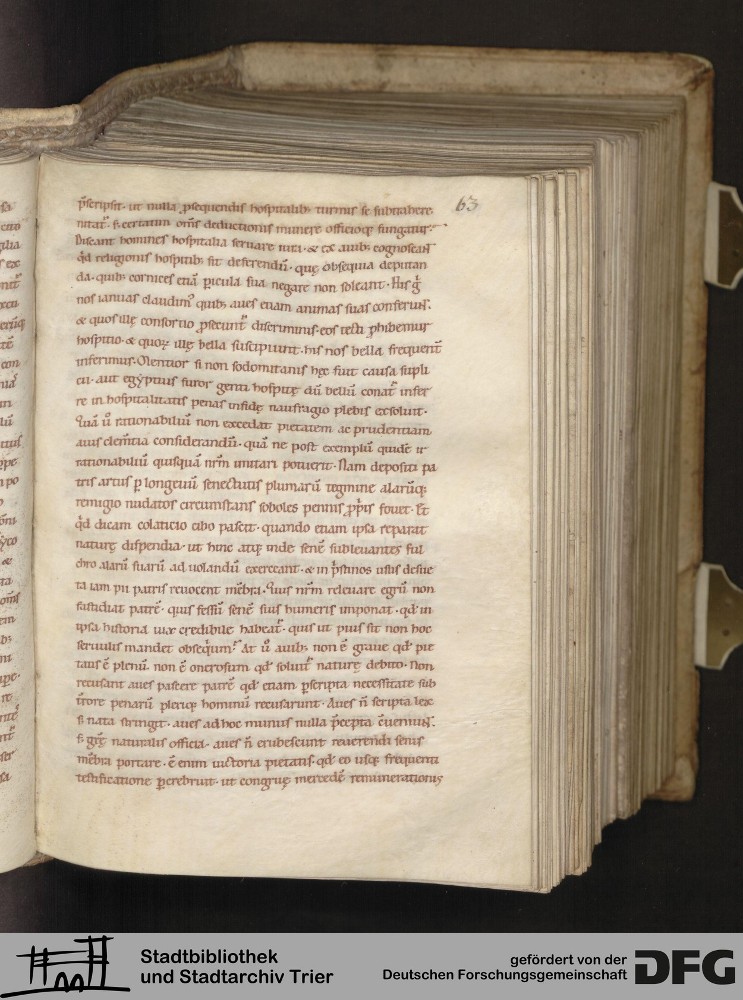 63
p̄scripsit· ut nulla ꝓsequendis hospitalib; turmis se subtrahere
nitat᷑· s; certatim om̄s deductionis munere officioq; fungant᷑·
Discant homines hospitalia seruare iura· & ex auib; cognoscant
qd̄ religionis hospitib; sit deferendū· quę obsequia deputan
da· quib; cornices etiā pericula sua negare non soleant· His ḡ
nos ianuas claudimꝰ quib; aues etiam animas suas conferunt·
& quos illę consortio ꝓsecunt᷑ discriminis· eos tecti ꝓhibemus
hospitio· & quoꝝ illę bella suscipiunt· his nos bella frequent̄
inferimus· Olentior si non sodomitanis hęc fuit causa supli
cii· aut egyptius furor genti hospitę dū bellū conat᷑ infer
re inhospitalitatis penas infidę naufragio plebis exsoluit·
Quā ū rationabiliū non excedat pietatem ac prudentiam
auis clem̄tia considerandū· quā ne post exemplū quidē ir
rationabiliū quisquā nr̄m imitari potuerit· Nam depositi pa
tris artus ꝑ longeuū senectutis plumarū tegmine alarūq;
remigio nudatos circumstans soboles pennis ꝓprīs fouet· Et
qd̄ dicam colaticio cibo pascit· quando etiam ipsa reparat
naturę dispendia· ut hinc atq; inde senē subleuantes ful
chro alarū suarū ad uolandū exerceant· & in p̄stinos usus desue
ta iam pii patris reuocent mēbra· Quis nr̄m releuare egrū non
fastidiat patrē· quis fessū senē suis humeris imponat· qd̄ in
ipsa historia uix credibile habeat᷑· quis ut pius sit non hoc
seruulis mandet obsequium? At ū auib; non ē graue qd̄ pie
tatis ē plenū· non ē onerosum qd̄ soluit᷑ naturę debito· Non
recusant aues pascere patrē qd̄ etiam p̄scripta necessitate sub
t̄rore penarū pleriq; hominū recusarunt· Aues n̄ scripta lex
s; nata stringit· aues ad hoc munus nulla p̄cepta cōueniunt·
s; grę naturalis officia· aues n̄ erubescunt reuerendi senis
mēbra portare· ē enim uictoria pietatis· qd̄ eo usq; frequenti
testificatione ꝑcrebruit· ut congruę mercedē remunerationis
Stadtbibliothek
und Stadtarchiv Trier
gefördert von der
Deutschen Forschungsgemeinschaft
DFG